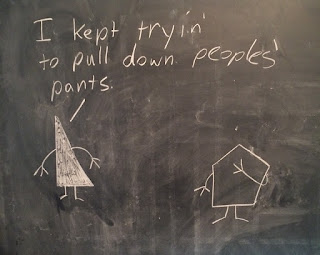 I kept tryin'
to pull down peoples'
pants.